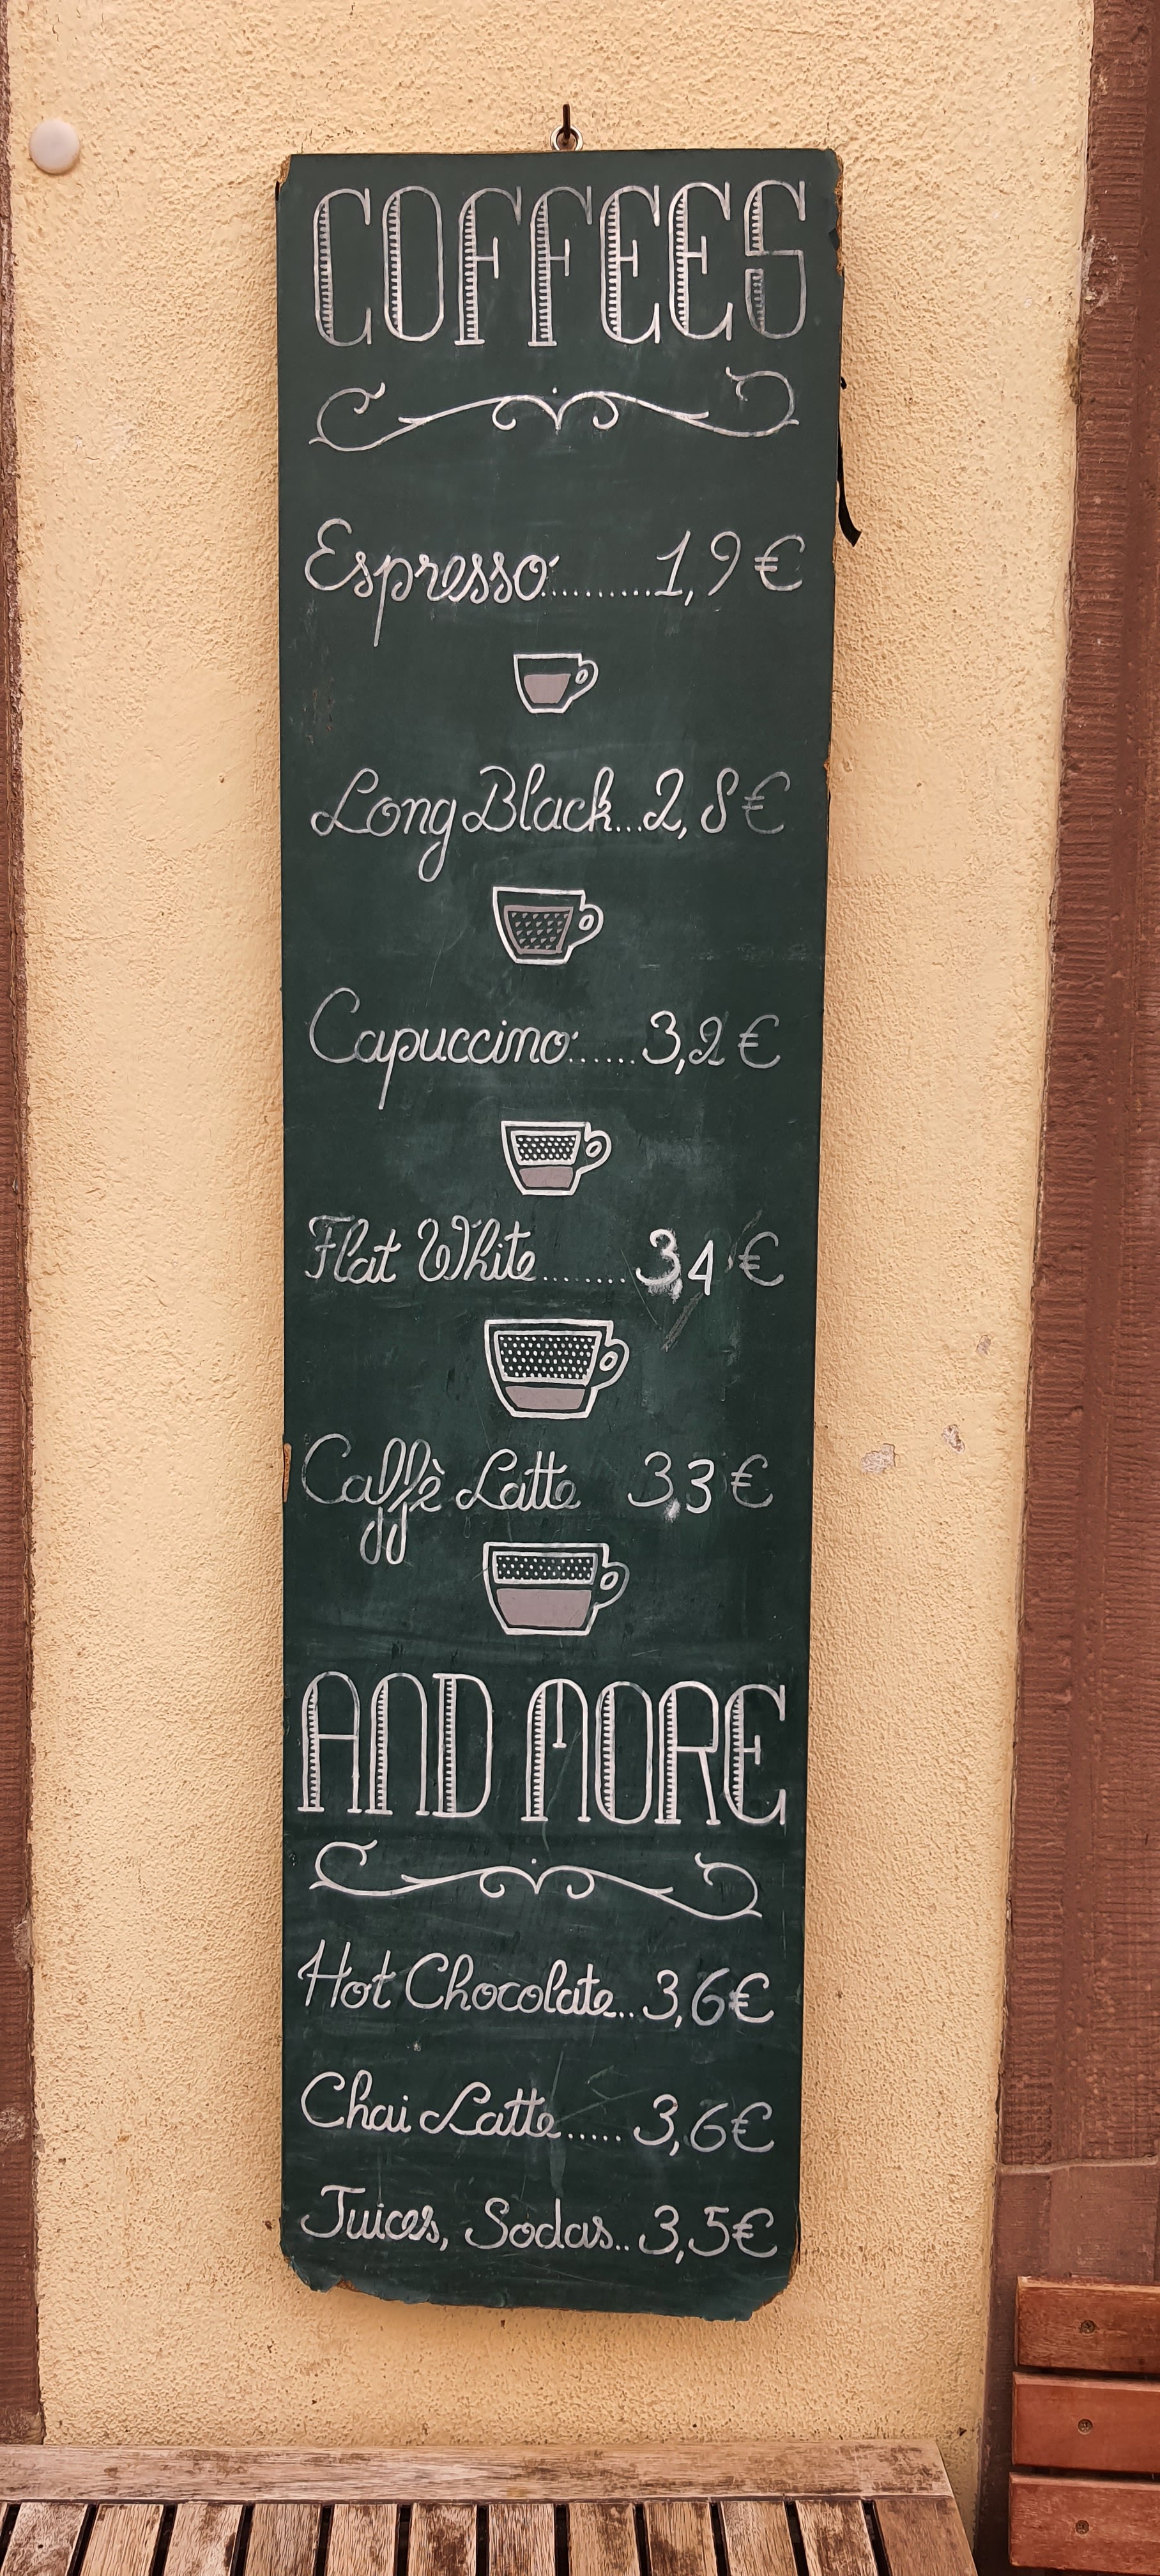 COFFEES
Espresso..........1,9€
Long Black...2,8€
Capuccino......3,2€
Flat White........3,4€
Caffè Latte 3,3€
AND MORE
Hot Chocolate..3,6€
Chai Latte.....3,6€
Juices, Sodas..3,5€